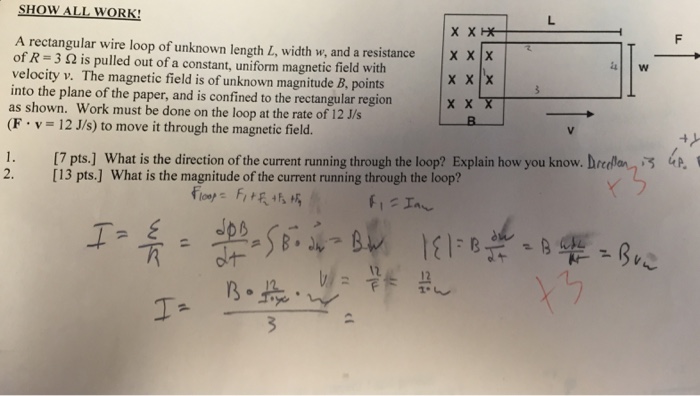 SHOW ALL WORK!
A rectangular wire loop of unknown length L, width w, and a resistance
of R = 3 Ω is pulled out of a constant, uniform magnetic field with
velocity v. The magnetic field is of unknown magnitude B, points
into the plane of the paper, and is confined to the rectangular region
as shown. Work must be done on the loop at the rate of 12 J/s
(F · v = 12 J/s) to move it through the magnetic field.
X X X X L
X X X 2 F
X X X 4 w
3
X X X
B v
1. [7 pts.] What is the direction of the current running through the loop? Explain how you know. Direction is up.
2. [13 pts.] What is the magnitude of the current running through the loop?
+3
F loop = F1 + F2 + F3 + F4
I = ε/R = dφB/dt = ∫B · = Bw |ε| = B = B = Bvw
v = 12/F = 12
I = B · 12 · w / 3 =
+3